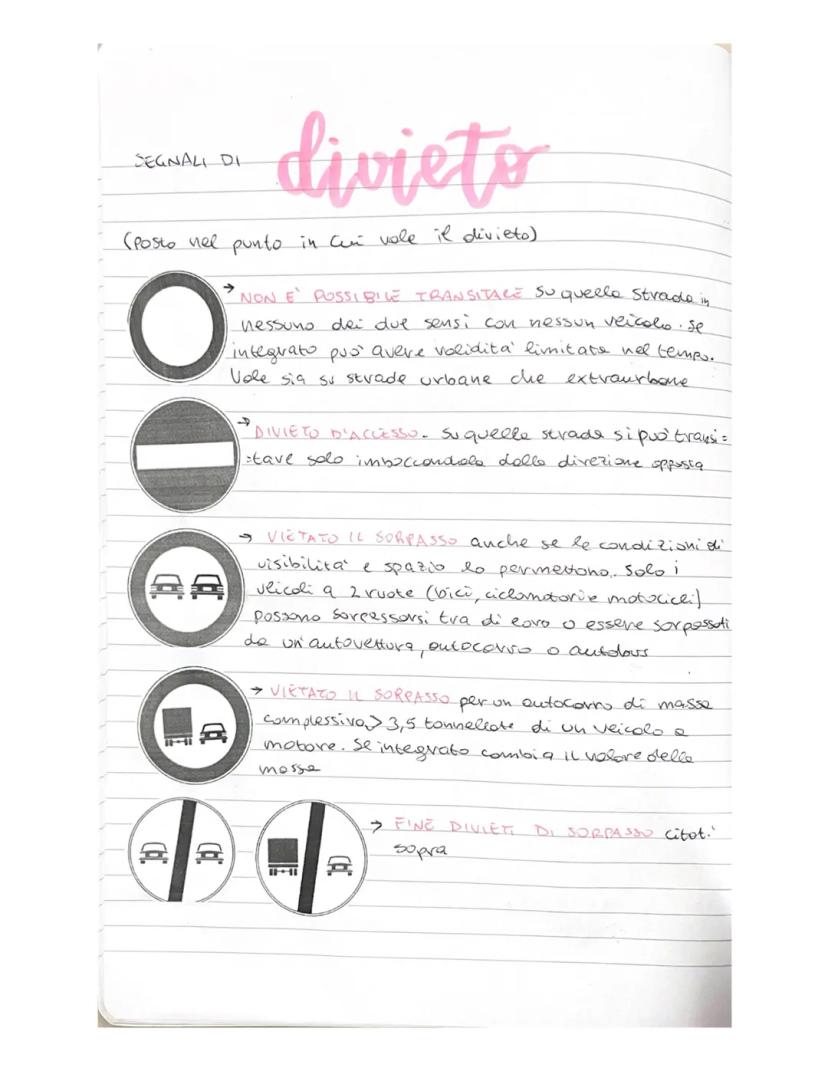 SEGNALI DI divieto
(posto nel punto in cui vale il divieto)
→ NON E' POSSIBILE TRANSITARE su quella strada in
nessuno dei due sensi con nessun veicolo. Se
integrato può avere validità limitata nel tempo.
Vale sia su strade urbane che extraurbane
→ DIVIETO D'ACCESSO. Su quella strada si può transi=
=tare solo imboccandola dalla direzione opposta
→ VIETATO IL SORPASSO anche se le condizioni di
visibilità e spazio lo permettono. Solo i
veicoli a 2 ruote (bici, ciclomotori e motocicli)
possono sorpassarsi tra di loro o essere sorpassati
da un'autovettura, autocarro o autobus
→ VIETATO IL SORPASSO per un autocarro di massa
complessiva > 3,5 tonnellate di un veicolo a
motore. Se integrato cambia il valore della
massa
→ FINE DIVIETI DI SORPASSO citati
sopra